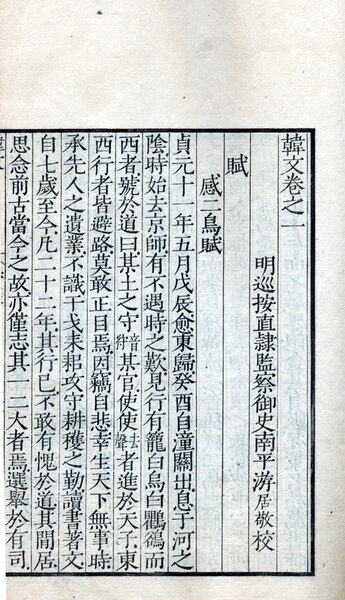 韓文卷之一
明巡按直隸監察御史南平游居敬校
賦
感二鳥賦
貞元十一年五月戊辰愈東歸癸酉自潼關出息于河之
陰時始去京師有不遇時之歎見行有籠白烏白鸜鵒而
西者號於道曰某土之守音狩某官使使去聲者進於天子東
西行者皆避路莫敢正目焉因竊自悲幸生天下無事時
承先人之遺業不識干戈耒耜攻守耕穫之勤讀書著文
自七歲至今凡二十二年其行已不敢有愧於道其閒居
思念前古當今之故亦僅志其一二大者焉選舉於有司